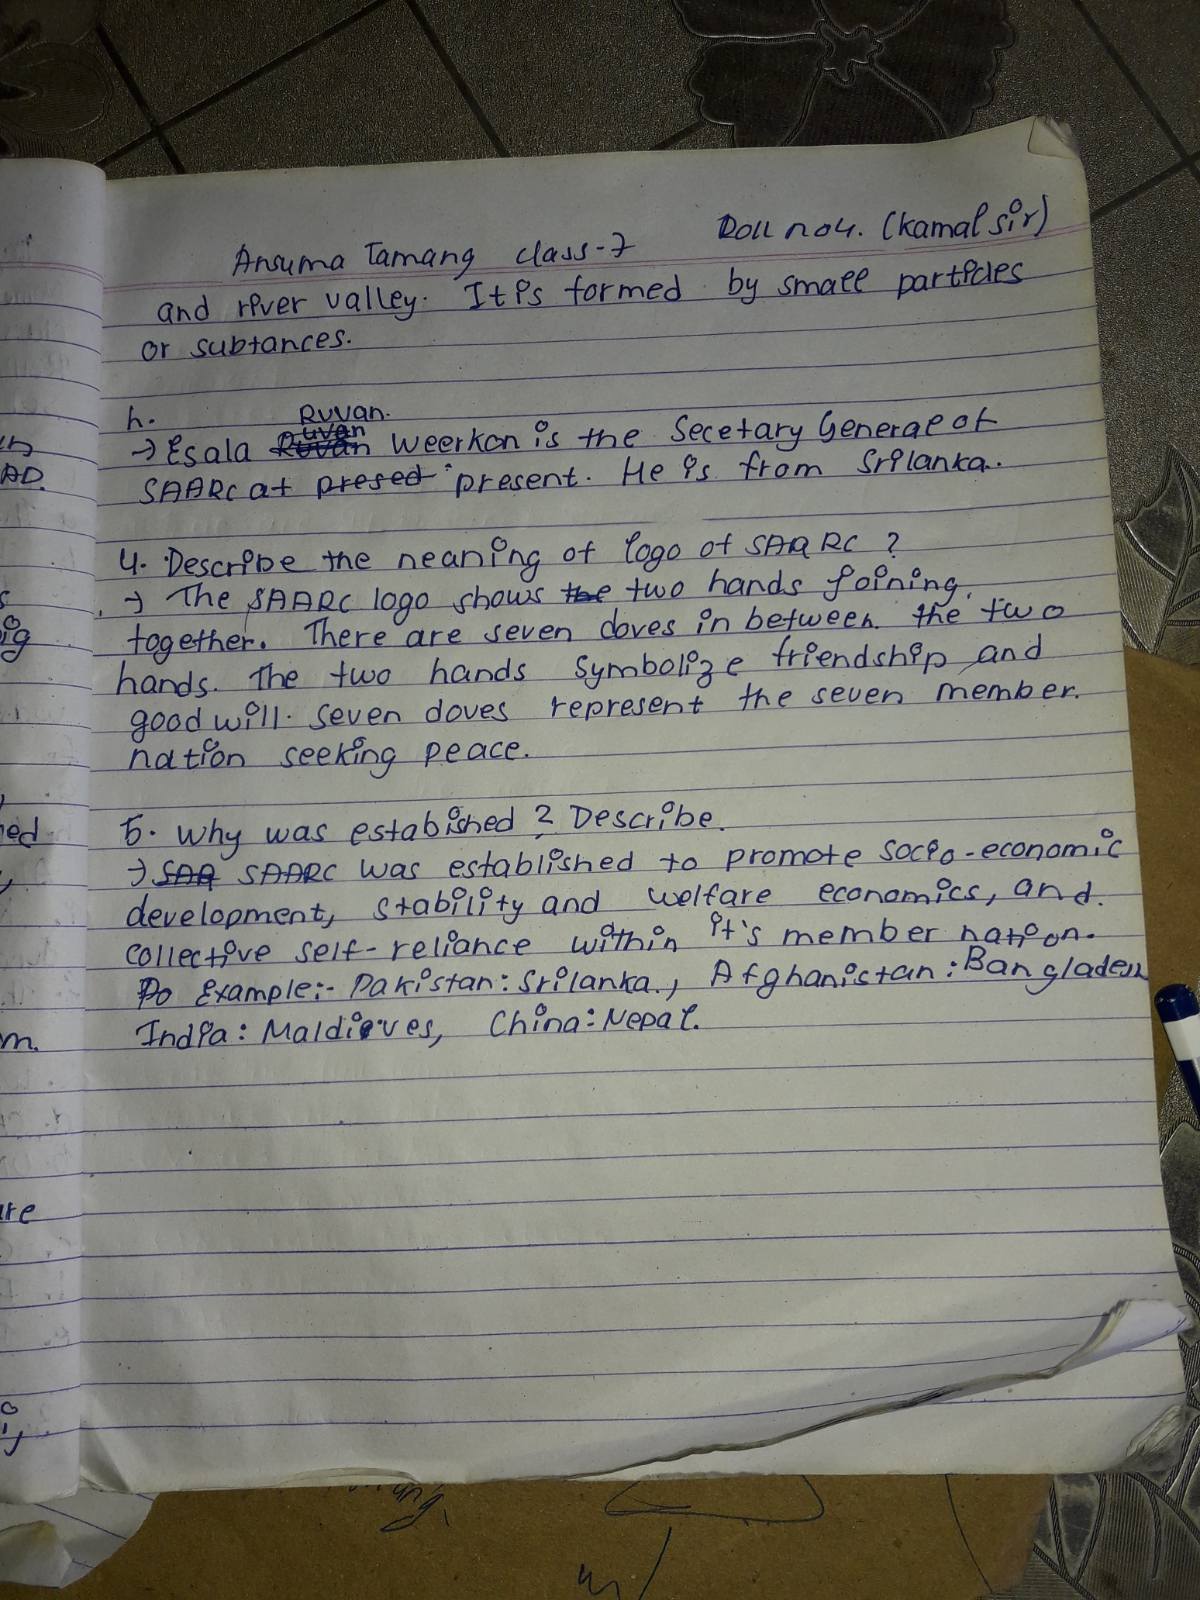 Ansuma Tamang class-7 Roll no4. (Kamal sir)
and river valley. It is formed by small particles
or subtances.
h.
Ruvan.
→ Esala Weerkon is the Secetary General of
SAARC at present. He is from Srilanka.
4. Describe the neaning of logo of SAARC ?
→ The SAARC logo shows two hands joining.
together. There are seven doves in between the two
hands. The two hands symbolize friendship and
good will. seven doves represent the seven member.
nation seeking peace.
5. Why was estabished ? Describe.
→ SAARC was established to promote socio-economic
development, stability and welfare economics, and.
collective self-reliance within it's member nation.
Example:- Pakistan: Srilanka., Afghanistan: Bangladesh
India: Maldives, China: Nepal.
AD.
ig
ned
m.
are